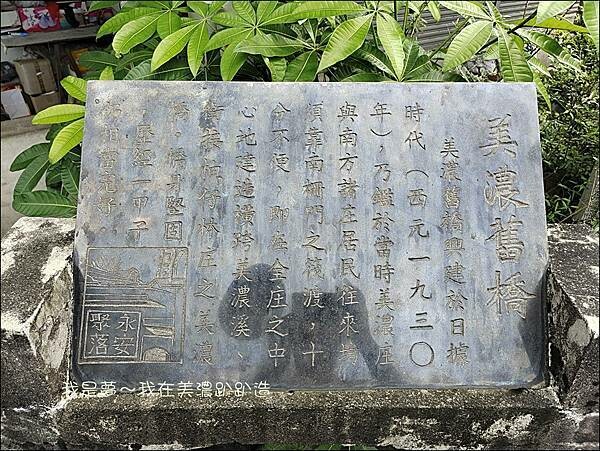 美濃舊橋
美濃舊橋興建於日據
時代（西元一九三〇
年），乃鑑於當時美濃庄
與南方諸庄居民往來均
須靠南柵門之筏渡，十
分不便，即在全庄之中
心地建造橫跨美濃溪、
庄之美濃
橋。橋身堅固
歷經一甲子
完好
永安
聚落
我是夢～我在美濃趴趴造